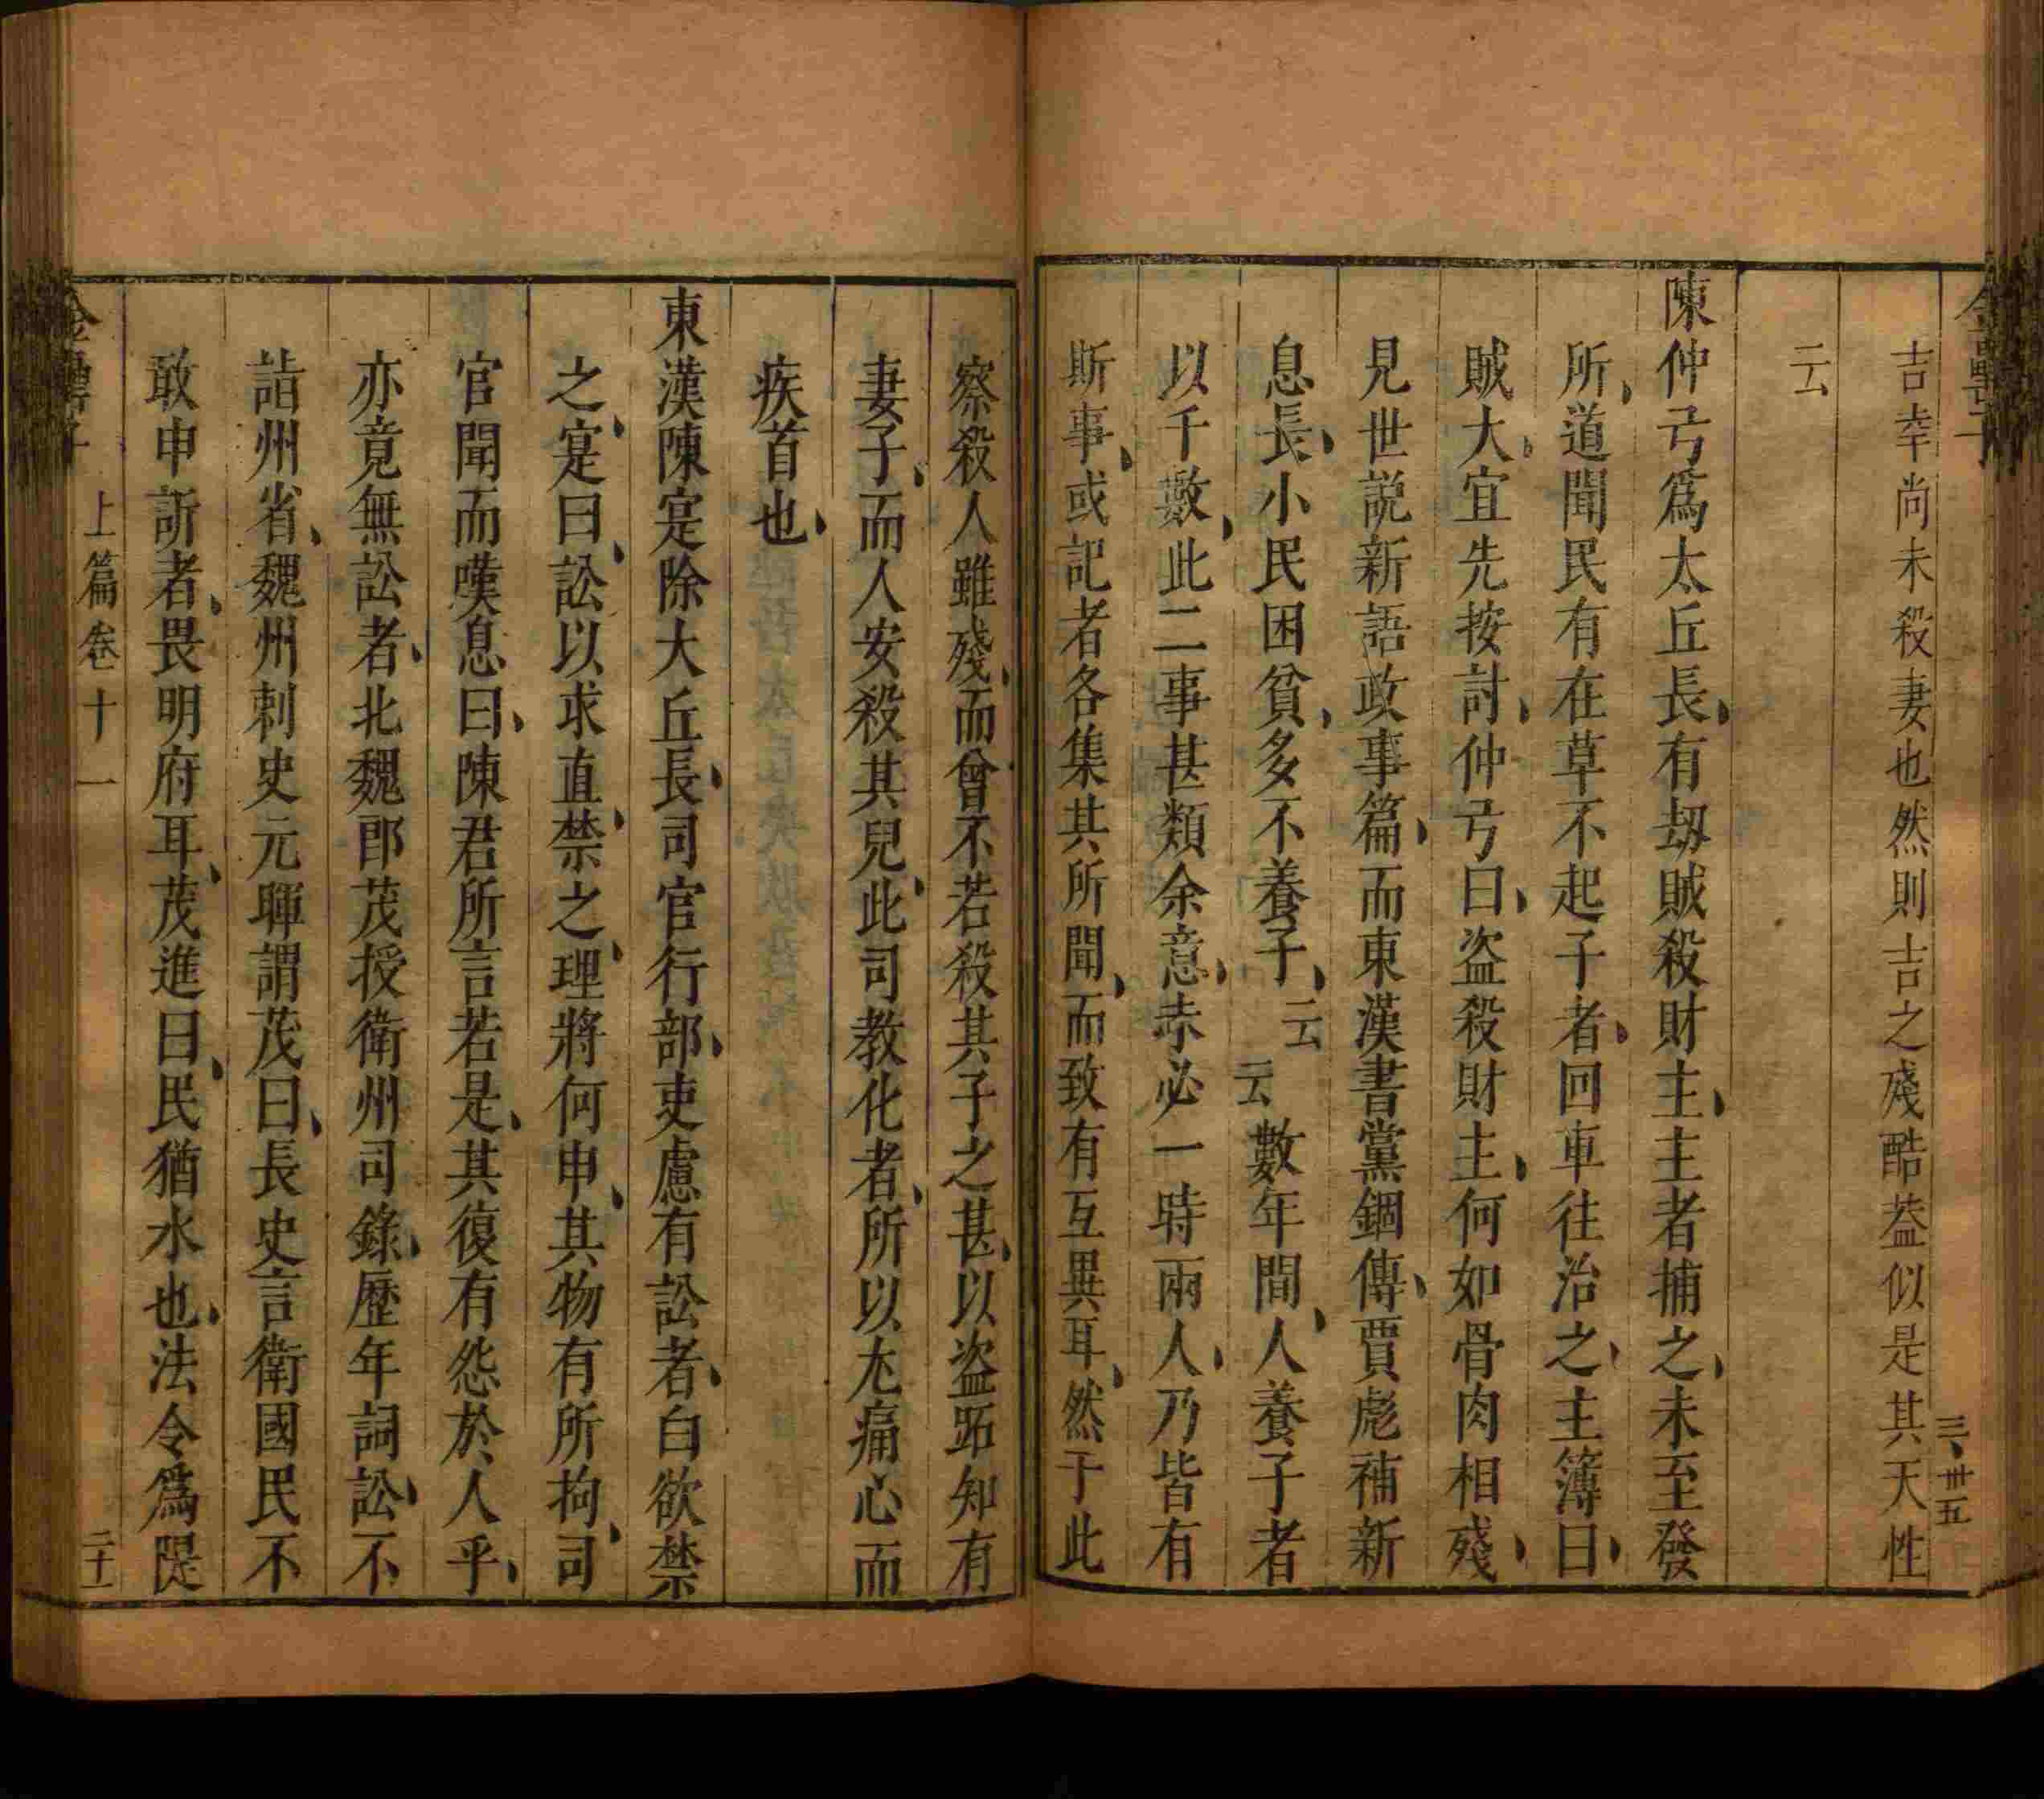 吉幸尚未殺妻也然則吉之殘酷葢似是其天性
云
陳仲弓爲太丘長有刼賊殺財主主者捕之未至發
所道聞民有在草不起子者回車往治之主簿曰
賊大宜先按討仲弓曰盗殺財主何如骨肉相殘
見世説新語政事篇而東漢書黨錮傳賈彪補新
息長小民困貧多不養子云云數年間人養子者
以千數此二事甚類余意未必一時兩人乃皆有
斯事或記者各集其所聞而致有互異耳然于此
三卅五
察殺人雖殘而曾不若殺其子之甚以盗跖知有
妻子而人安殺其兒此司教化者所以尤痛心而
疾首也
東漢陳寔除大丘長司官行部吏慮有訟者白欲禁
之寔曰訟以求直禁之理將何申其物有所拘司
官聞而嘆息曰陳君所言若是其復有怨於人乎
亦竟無訟者北魏郎茂授衛州司錄歷年詞訟不
詣州省魏州刺史元暉謂茂曰長史言衛國民不
敢申訴者畏明府耳茂進曰民猶水也法令爲隄
上篇卷十一
二十一